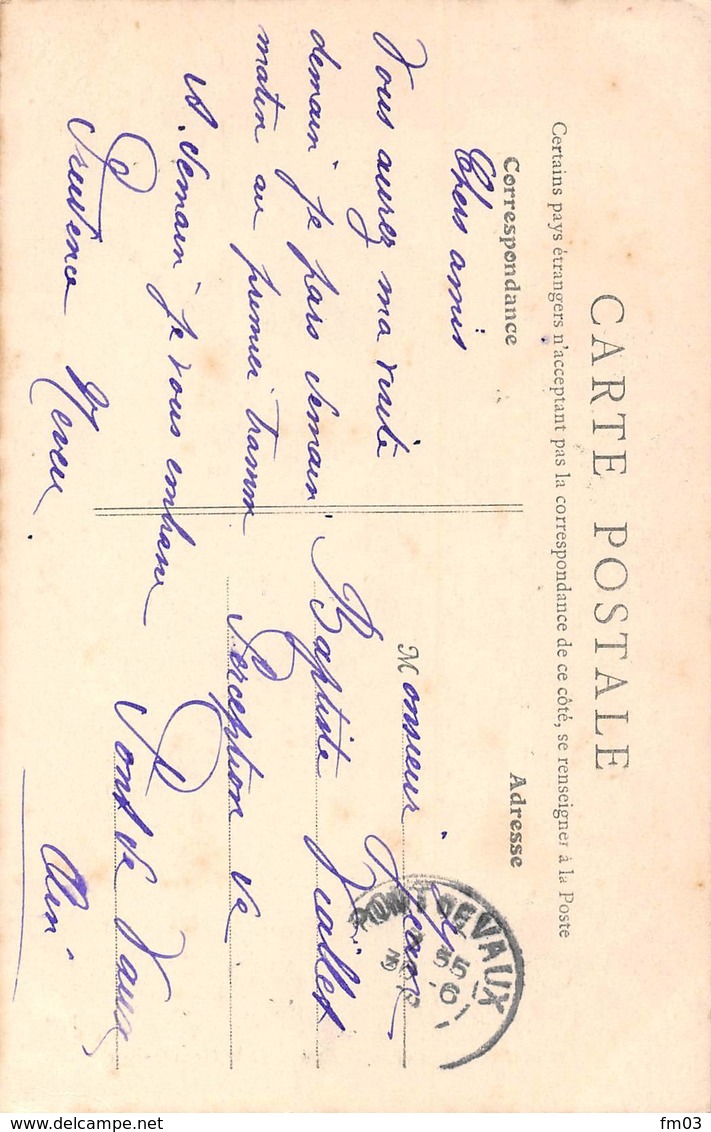 CARTE POSTALE
Certains pays étrangers n'acceptant pas la correspondance de ce côté, se renseigner à la Poste
Correspondance
Adresse
Chers amis
Vous aurez ma visite
demain je pars demain
matin au premier tramm
A. demain je vous embrasse
Prudence Neveu
Monsieur Jean
Baptiste Viallet
Perception de
Pont de Vaux
Ain
PONT DE VAUX
www.delcampe.net
fm03